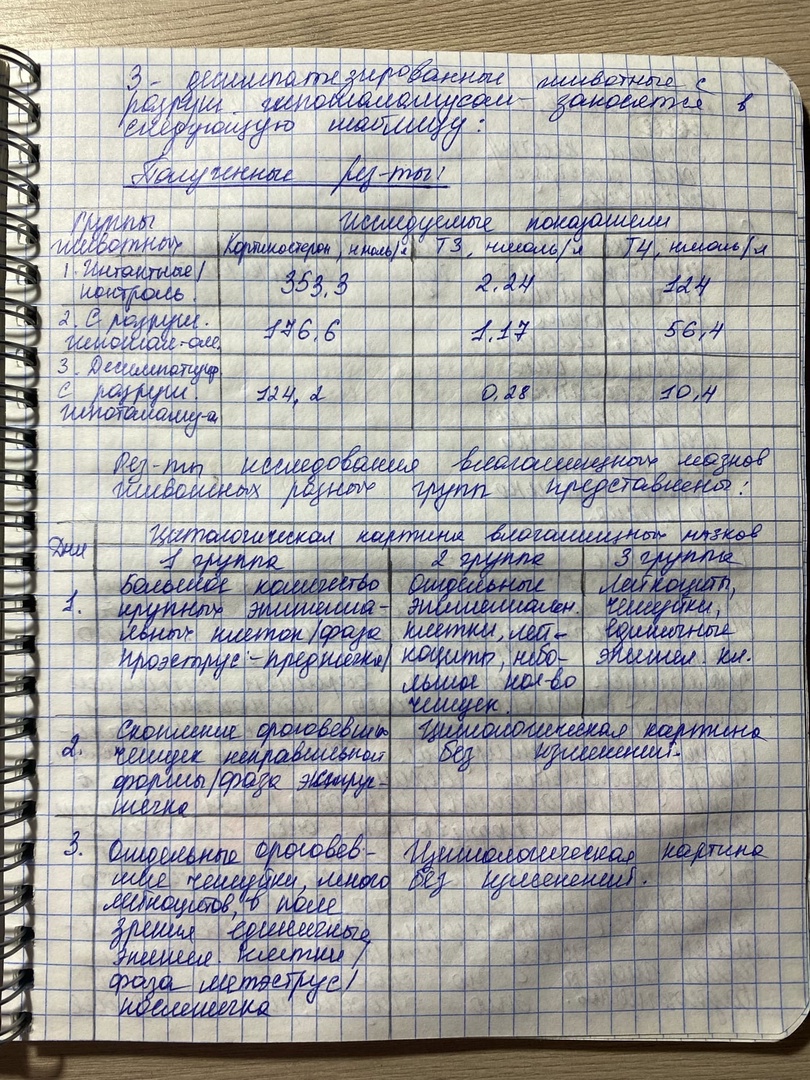 3 - десимпатизированные животные с
разруш. гипоталамусом - заносятся в
следующую таблицу:
Полученные рез-ты:
Группы животных | Исследуемые показатели
Кортикостерон, нмоль/л | Т3, нмоль/л | Т4, нмоль/л
1. Интактные/
контроль. | 353,3 | 2,24 | 124
2. С разруш. | 176,6 | 1,17 | 56,4
гипоталам-ом.
3. Десимпатизир.
с разруш. | 124,2 | 0,28 | 10,4
гипоталаму-м
Рез-ты исследования влагалищных мазков
животных разных групп представлены:
Дни | Цитологическая картина влагалищных мазков
1 группа | 2 группа | 3 группа
1. Большое количество | Отдельные | Лейкоциты,
крупных эпителиа- | эпителиальн. | чешуйки,
льных клеток/фаза | клетки, лей- | единичные
проэструс - предтечка/ | коциты, небо- | эпител. кл.
льшое кол-во
чешуек.
2. Скопление ороговевших | Цитологическая картина
чешуек неправильной | без изменений.
формы/фаза эструс-
течка
3. Отдельные ороговев- | Цитологическая картина
шие чешуйки, много | без изменений.
лейкоцитов, в поле
зрения единичные
эпител. клетки/
фаза метэструс/
послетечка